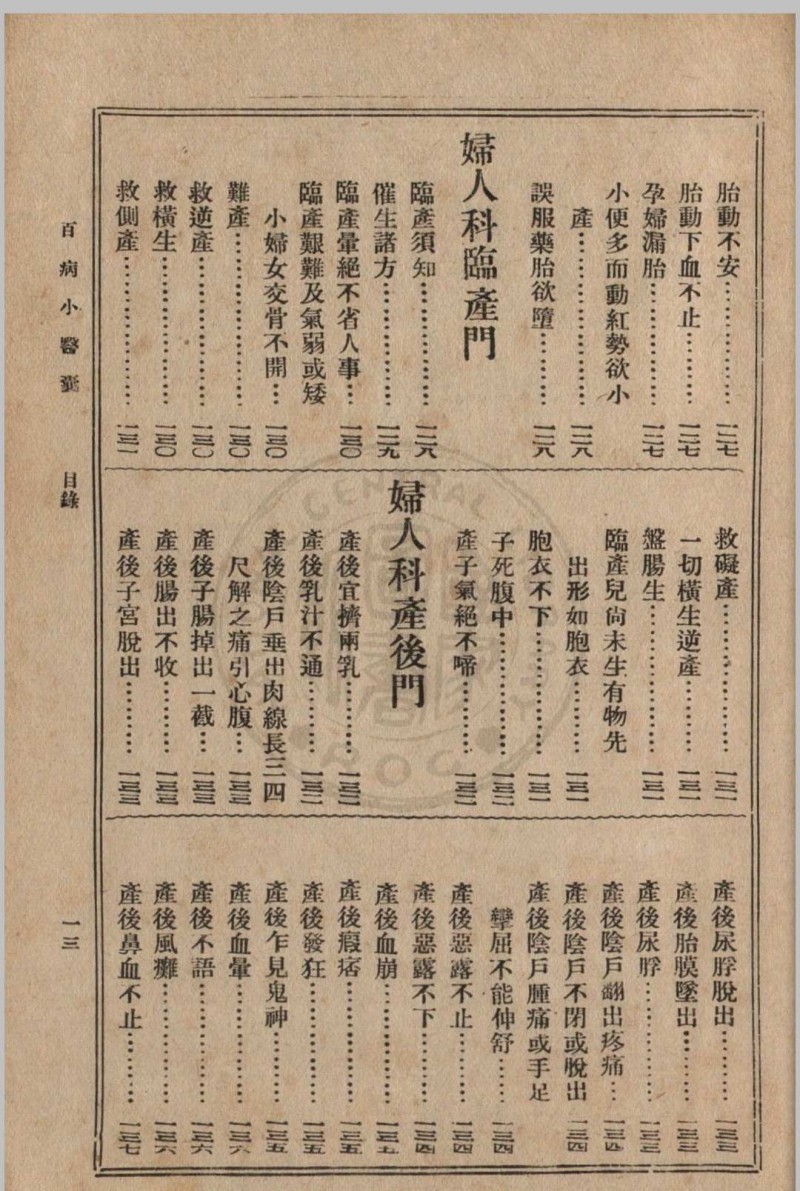 胎動不安……一二七
胎動下血不止……一二七
孕婦漏胎……一二七
小便多而動紅勢欲小
產……一二八
誤服藥胎欲墮……一二八
婦人科臨產門
臨產須知……一二八
催生諸方……一二九
臨產暈絕不省人事…一三〇
臨產艱難及氣弱或矮
小婦女交骨不開…一三〇
難產……一三〇
救逆產……一三〇
救橫生……一三〇
救側產……一三一
救礙產……一三一
一切橫生逆產……一三一
盤腸生……一三一
臨產兒尙未生有物先
出形如胞衣……一三一
胞衣不下……一三一
子死腹中……一三二
產子氣絕不啼……一三二
婦人科產後門
產後宜擠兩乳……一三二
產後乳汁不通……一三二
產後陰戶垂出肉線長三四
尺解之痛引心腹…一三三
產後子腸掉出一截…一三三
產後腸出不收……一三三
產後子宮脫出……一三三
產後尿脬脫出……一三三
產後胎膜墜出……一三三
產後尿脬……一三三
產後陰戶翻出疼痛…一三四
產後陰戶不閉或脫出一三四
產後陰戶腫痛或手足
攣屈不能伸舒……一三四
產後惡露不止……一三四
產後惡露不下……一三四
產後血崩……一三五
產後瘕痞……一三五
產後發狂……一三五
產後乍見鬼神……一三五
產後血暈……一三六
產後不語……一三六
產後風癱……一三六
產後鼻血不止……一三七
百病小醫囊 目錄 一三